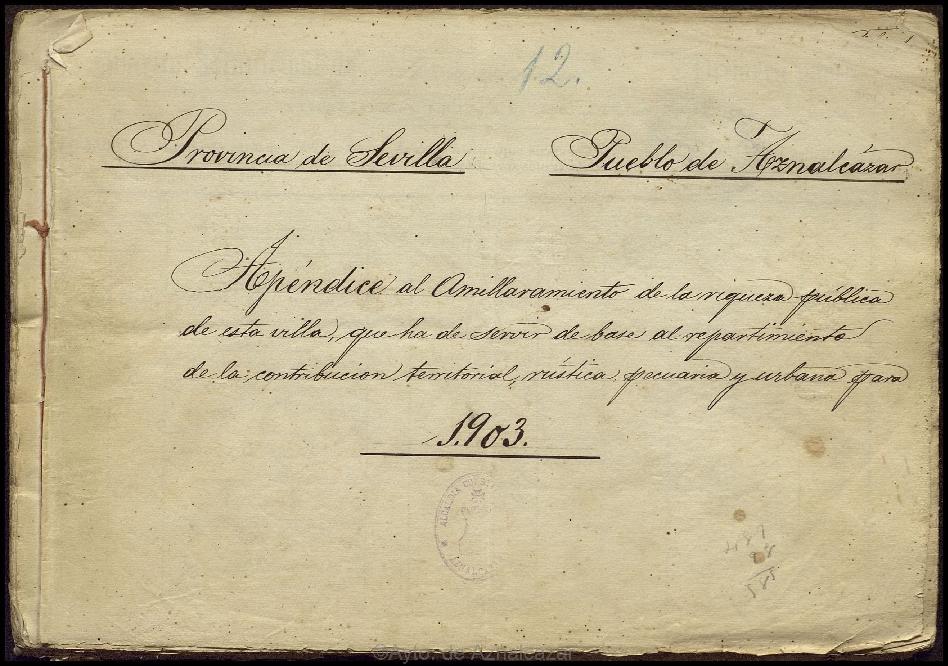 12.
Provincia de Sevilla
Pueblo de Aznalcázar
Apéndice al Amillaramiento de la riqueza pública
de esta villa, que ha de servir de base al repartimiento
de la contribucion territorial, rústica, pecuaria y urbana para
1.903.
ALCALDIA
AZNALCAZAR
585
©Ayto. de Aznalcázar